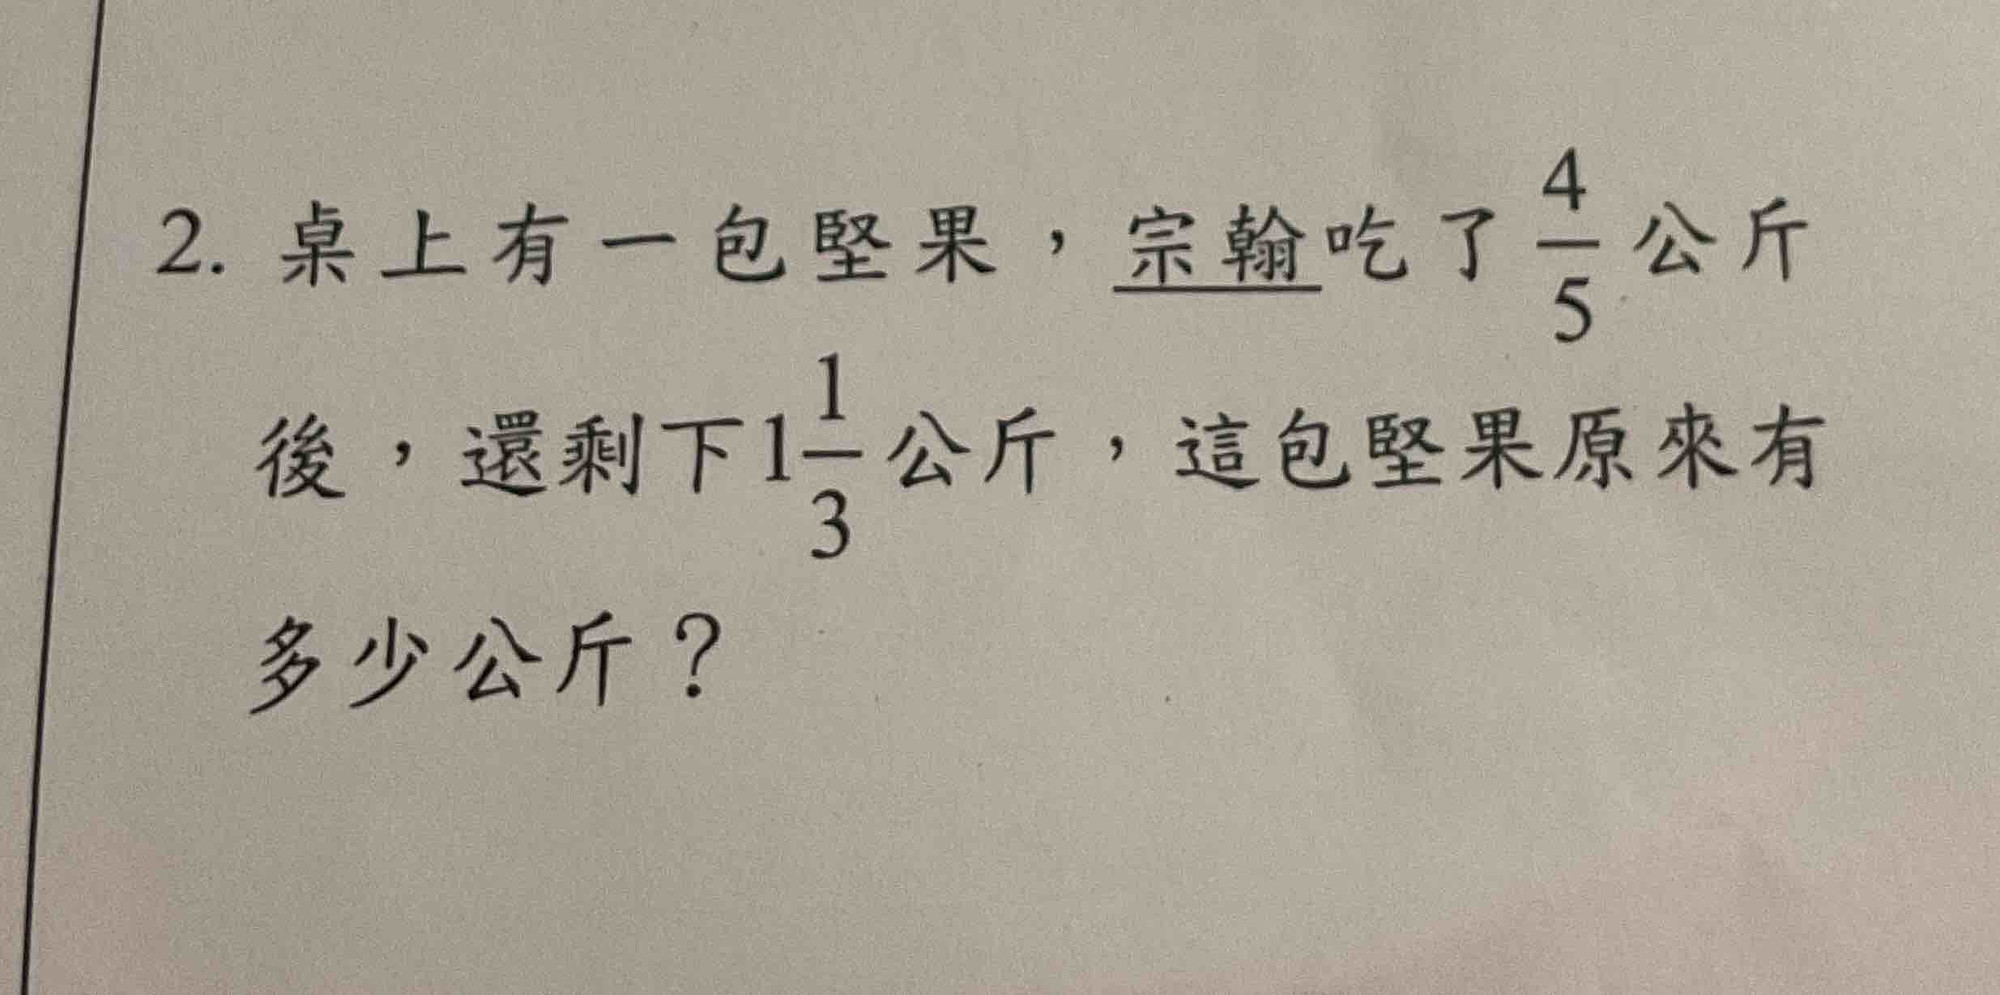 2. 桌上有一包堅果，宗翰吃了4/5公斤
後，還剩下1 1/3公斤，這包堅果原來有
多少公斤？